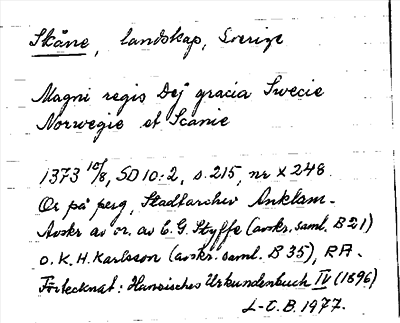 Skåne, landskap, Sverige
Magni regis Dej gracia Swecie
Norwegie et Scanie
1373 10/8, SD 10:2, s. 215, nr X 248.
Or på perg, Stadtarchiv Anklam.
Avskr av or. av C. G. Styffe (avskr. saml. B 21)
o. K. H. Karlsson (avskr. saml. B 35), RA.
Förtecknat: Hansisches Urkundenbuch IV (1896)
L-E. B. 1977.